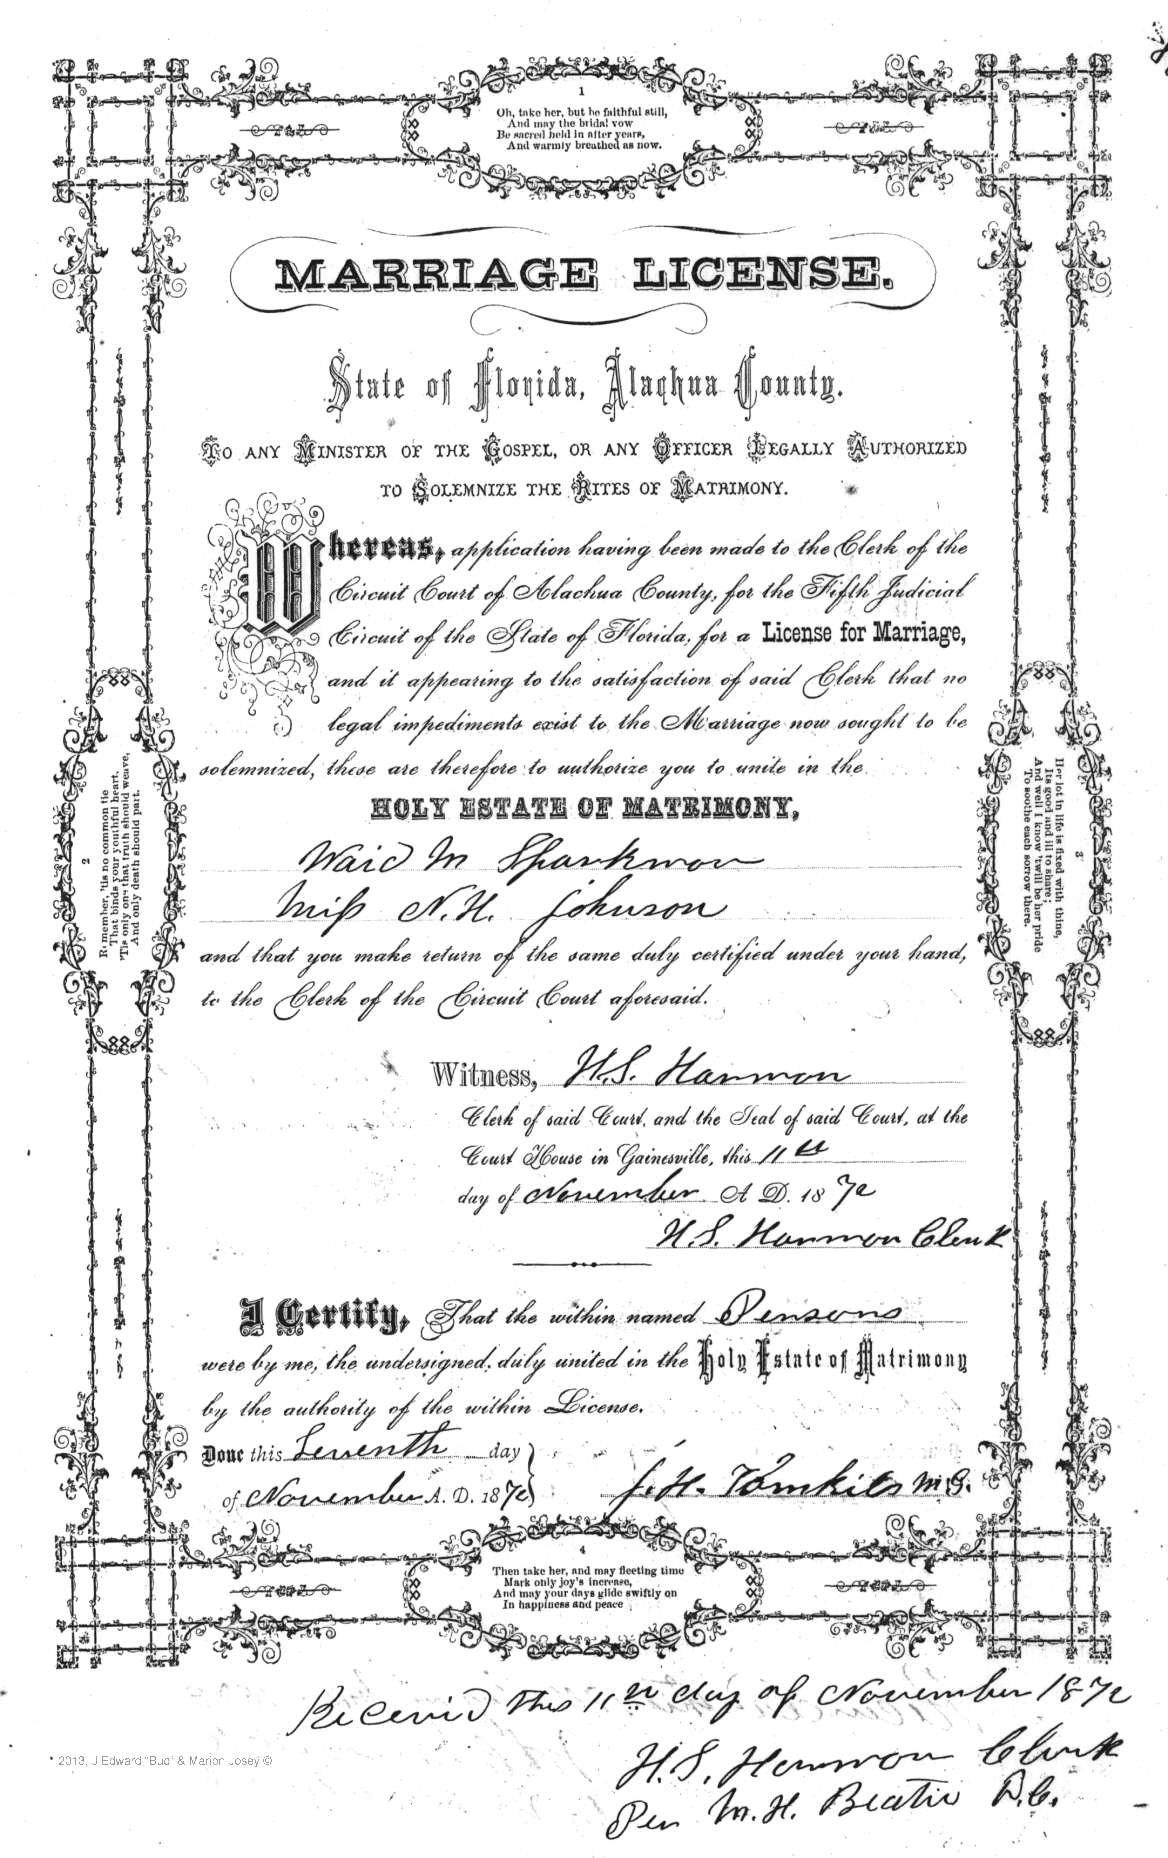 1
Oh, take her, but be faithful still,
And may the bridal vow
Be sacred held in after years,
And warmly breathed as now.
MARRIAGE LICENSE.
State of Florida, Alachua County.
TO ANY MINISTER OF THE GOSPEL, OR ANY OFFICER LEGALLY AUTHORIZED
TO SOLEMNIZE THE RITES OF MATRIMONY.
Whereas, application having been made to the Clerk of the
Circuit Court of Alachua County, for the Fifth Judicial
Circuit of the State of Florida, for a License for Marriage,
and it appearing to the satisfaction of said Clerk that no
legal impediments exist to the Marriage now sought to be
solemnized, these are therefore to authorize you to unite in the
HOLY ESTATE OF MATRIMONY,
Waid M Sparkman
Miss N.H. Johnson
and that you make return of the same duly certified under your hand,
to the Clerk of the Circuit Court aforesaid.
2
Remember, 'tis no common tie
That binds your youthful heart,
'Tis only one that truth should weave,
And only death should part.
3
Her lot in life is fixed with thine,
Its good and ill to share;
And well I know 'twill be her pride
To soothe each sorrow there.
Witness, H.S. Harmon
Clerk of said Court, and the Seal of said Court, at the
Court House in Gainesville, this 11th
day of November A D. 1872
H.S. Harmon Clerk
I Certify, That the within named Persons
were by me, the undersigned, duly united in the Holy Estate of Matrimony
by the authority of the within License.
Done this Seventh day
of November A. D. 1872
J.H. Tomkies M.G.
4
Then take her, and may fleeting time
Mark only joy's increase,
And may your days glide swiftly on
In happiness and peace
Received this 11th day of November 1872
H.S. Harmon Clerk
Per M.H. Beatie D.C.
2013, J Edward "Bud" & Marion Josey ©